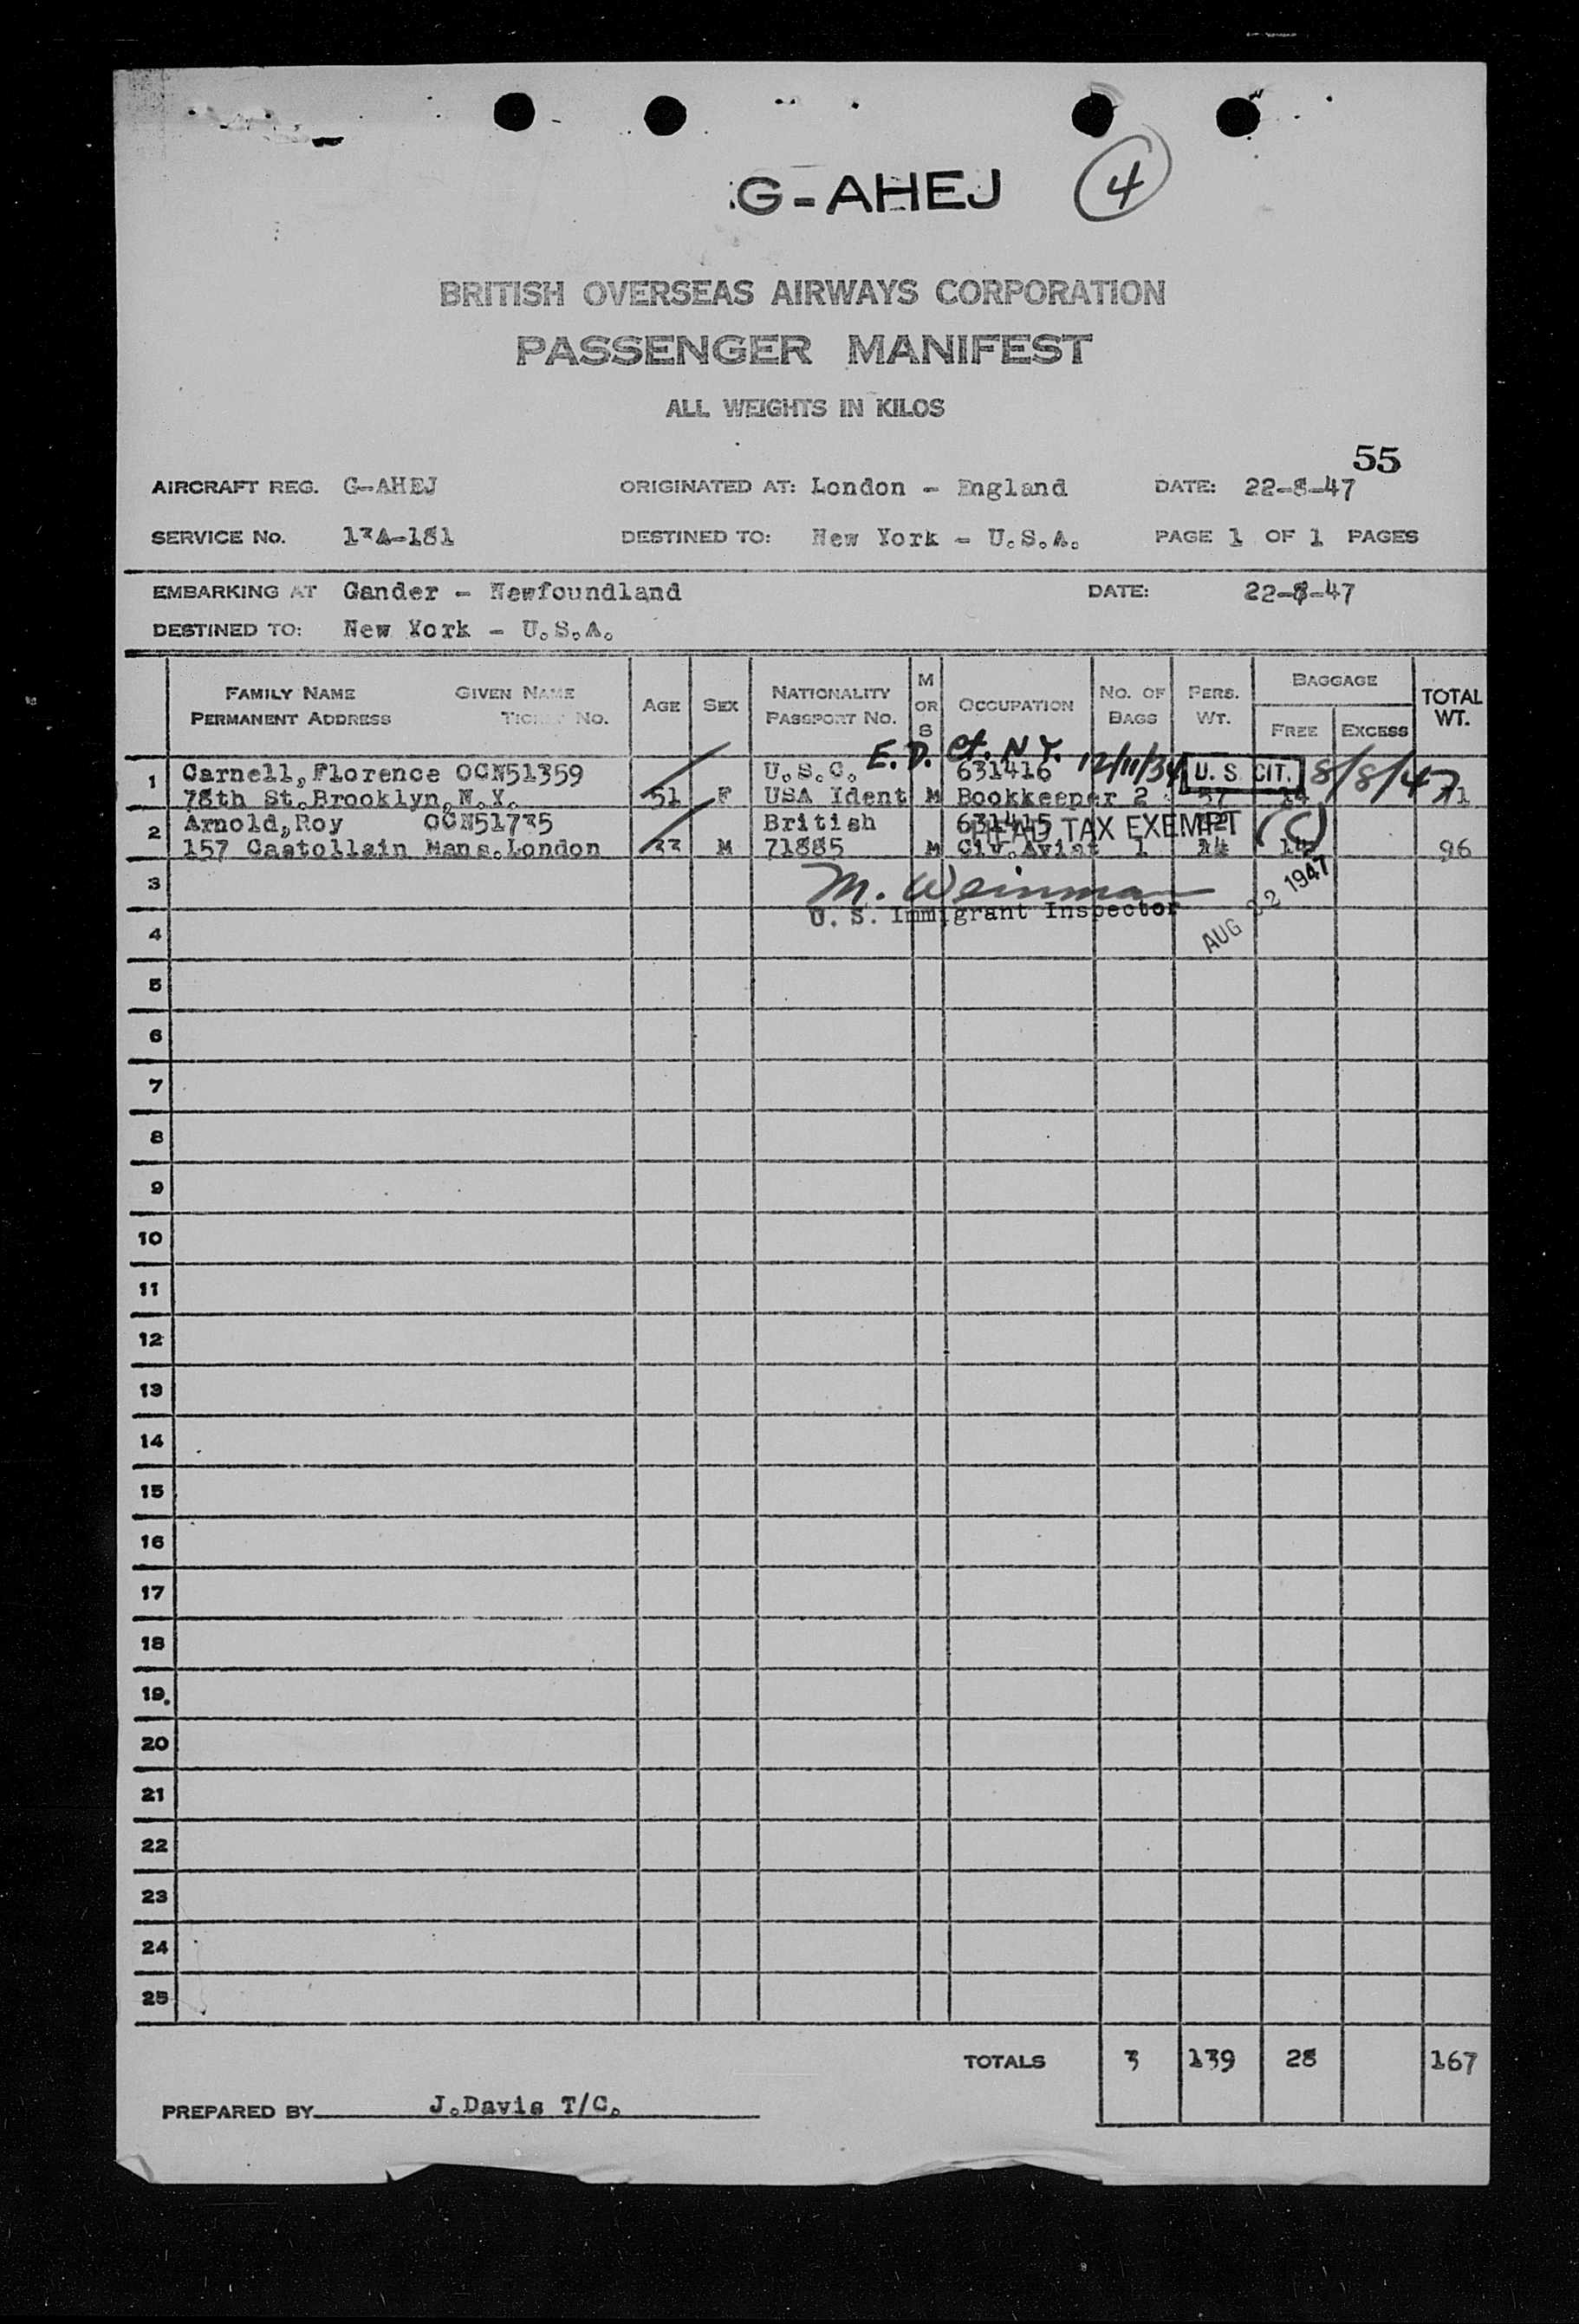 G-AHEJ 4
BRITISH OVERSEAS AIRWAYS CORPORATION
PASSENGER MANIFEST
ALL WEIGHTS IN KILOS
55
AIRCRAFT REG. G-AHEJ ORIGINATED AT: London - England DATE: 22-8-47
SERVICE No. 13A-181 DESTINED TO: New York - U.S.A. PAGE 1 OF 1 PAGES
EMBARKING AT Gander - Newfoundland DATE: 22-8-47
DESTINED TO: New York - U.S.A.
FAMILY NAME GIVEN NAME AGE SEX NATIONALITY M OR S OCCUPATION NO. OF BAGS PERS. WT. BAGGAGE TOTAL WT.
PERMANENT ADDRESS TICKET NO. PASSPORT NO. FREE EXCESS
E. D. Ct. N.Y. 12/11/34 U. S. CIT. 8/8/47
1 Carnell, Florence OCN51359 U.S.C. 631416
78th St. Brooklyn, N.Y. 51 F USA Ident M Bookkeeper 2 57 14 71
2 Arnold, Roy OCN51735 British 631415 HEAD TAX EXEMPT (C)
157 Castollain Mans. London 33 M 71885 M Civ. Aviat 1 14 96
3 M. Weinman
U. S. Immigrant Inspector AUG 22 1947
4
5
6
7
8
9
10
11
12
13
14
15
16
17
18
19.
20
21
22
23
24
25
TOTALS 3 139 28 167
PREPARED BY J.Davis T/C.